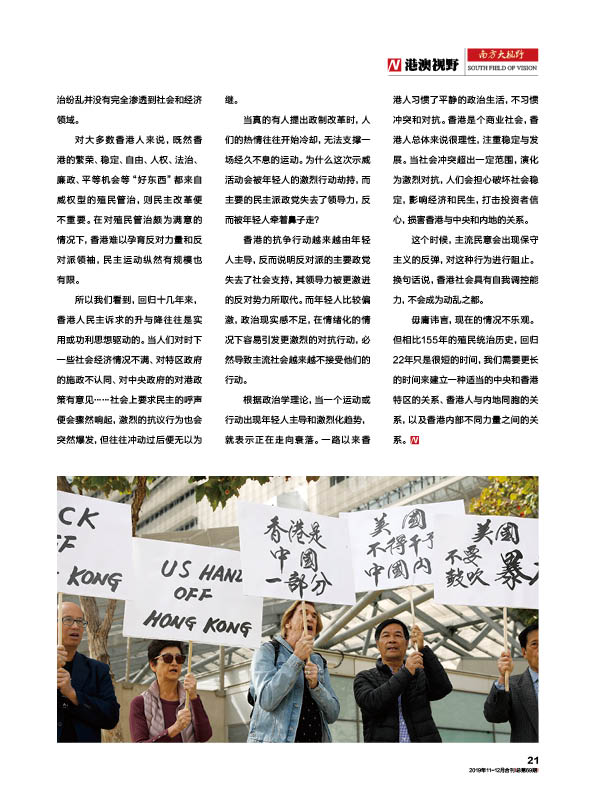 港澳视野
南方大视野
SOUTH FIELD OF VISION
治纷乱并没有完全渗透到社会和经济
领域。
对大多数香港人来说，既然香
港的繁荣、稳定、自由、人权、法治、
廉政、平等机会等“好东西”都来自
威权型的殖民管治，则民主改革便
不重要。在对殖民管治颇为满意的
情况下，香港难以孕育反对力量和反
对派领袖，民主运动纵然有规模也
有限。
所以我们看到，回归十几年来，
香港人民主诉求的升与降往往是实
用或功利思想驱动的。当人们对时下
一些社会经济情况不满、对特区政府
的施政不认同、对中央政府的对港政
策有意见……社会上要求民主的呼声
便会骤然响起，激烈的抗议行为也会
突然爆发，但往往冲动过后便无以为
继。
当真的有人提出政制改革时，人
们的热情往往开始冷却，无法支撑一
场经久不息的运动。为什么这次示威
活动会被年轻人的激烈行动劫持，而
主要的民主派政党失去了领导力，反
而被年轻人牵着鼻子走？
香港的抗争行动越来越由年轻
人主导，反而说明反对派的主要政党
失去了社会支持，其领导力被更激进
的反对势力所取代。而年轻人比较偏
激，政治现实感不足，在情绪化的情
况下容易引发更激烈的对抗行动，必
然导致主流社会越来越不接受他们的
行动。
根据政治学理论，当一个运动或
行动出现年轻人主导和激烈化趋势，
就表示正在走向衰落。一路以来香
港人习惯了平静的政治生活，不习惯
冲突和对抗。香港是个商业社会，香
港人总体来说很理性，注重稳定与发
展。当社会冲突超出一定范围，演化
为激烈对抗，人们会担心破坏社会稳
定，影响经济和民生，打击投资者信
心，损害香港与中央和内地的关系。
这个时候，主流民意会出现保守
主义的反弹，对这种行为进行阻止。
换句话说，香港社会具有自我调控能
力，不会成为动乱之都。
毋庸讳言，现在的情况不乐观。
但相比155年的殖民统治历史，回归
22年只是很短的时间，我们需要更长
的时间来建立一种适当的中央和香港
特区的关系、香港人与内地同胞的关
系，以及香港内部不同力量之间的关
系。
CK
FF
KONG
US HAND
OFF
HONG KONG
香港是
中國
一部分
美國
不得干予
中國内
美國
不要
鼓吹暴
21
2019年11-12月合刊总第69期